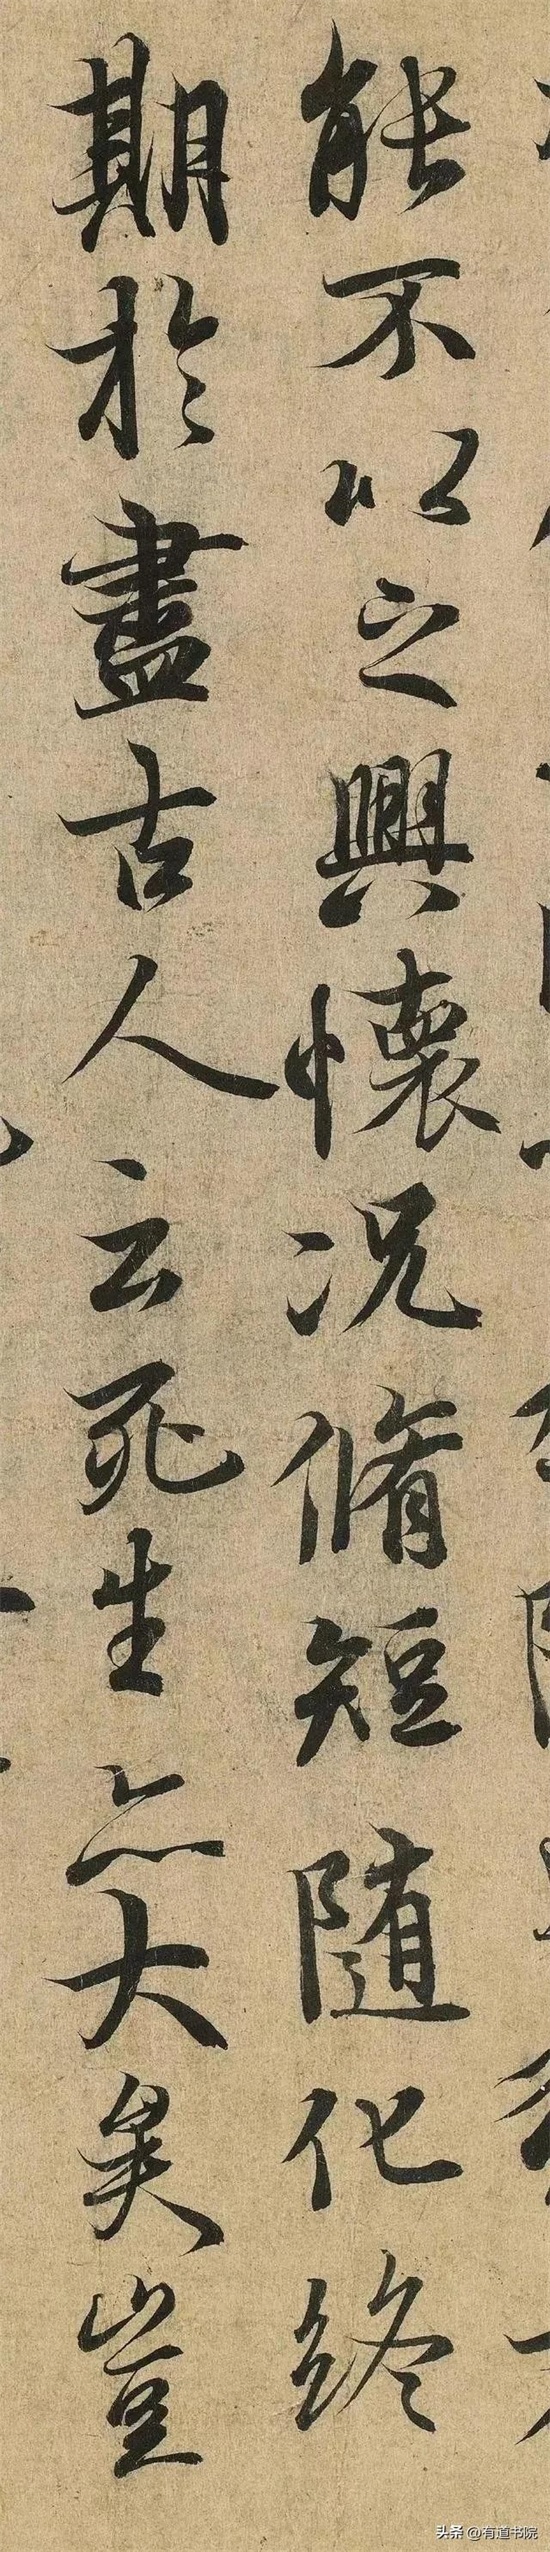 能不以之興懷况脩短随化终
期於盡古人云死生亦大矣豈
头条 @有道书院